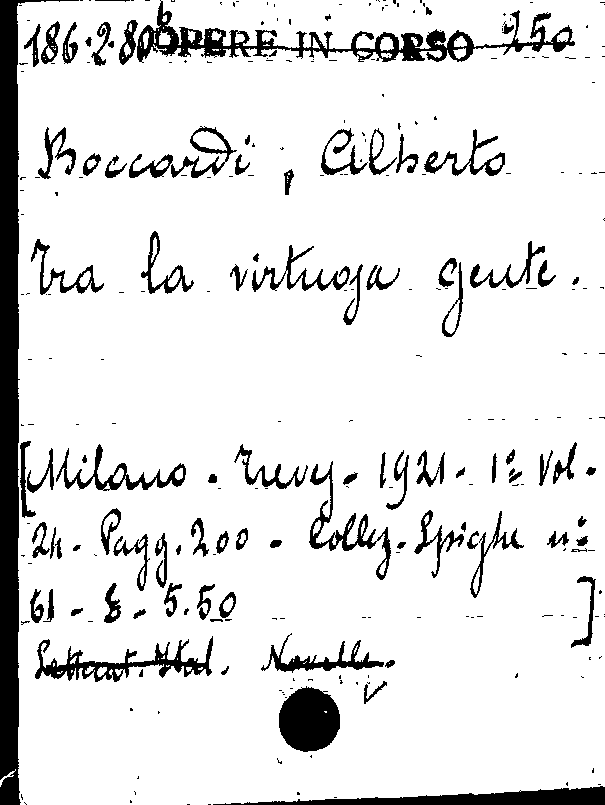 186.2.80 b OPERE IN CORSO 250
Boccardi, Alberto
Tra la virtuosa gente.
[Milano. Treves - 1921 - 1º Vol.
24 - Pagg. 200 - Collez. Spighe nº
61 - £ - 5.50 ]
Letterat. Ital. Novelle.